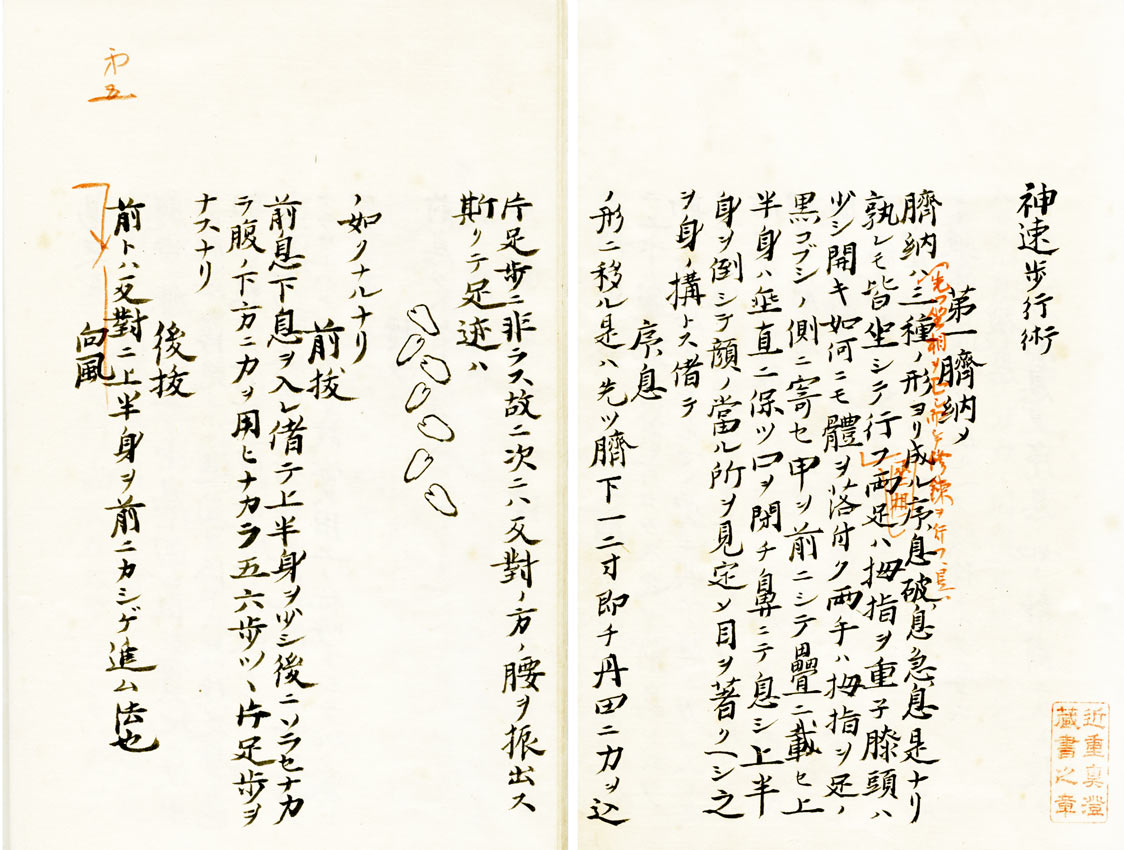 神速歩行術
第一臍納メ
臍納ハ三種ノ形ヨリ成ル序息破息急息是ナリ
孰レモ皆坐シテ行フ両足ハ拇指ヲ重子膝頭ハ
少シ開キ如何ニモ體ヲ落付ク両手ハ拇指ヲ足ノ
黒コブシノ側ニ寄セ申ヲ前ニシテ疊ニ載セ上
半身ハ垂直ニ保ツ口ヲ閉チ鼻ニテ息シ上半
身ヲ倒シテ顔ノ當ル所ヲ見定メ目ヲ著クヘシ之
ヲ身ノ搆トス偖テ
序息
ノ形ニ移ル是ハ先ツ臍下一二寸即チ丹田ニ力ヲ込
近重真澄
蔵書之章
片足歩ニ非ラス故ニ次ニハ反對ノ方ノ腰ヲ振出ス
斯クテ足迹ハ
ノ如クナルナリ
前拔
前息下息ヲ入レ偖テ上半身ヲ少シ後ニソラセナカ
ラ腹ノ下方ニ力ヲ用ヒナカラ五六歩ツヽ片足歩ヲ
ナスナリ
後拔
前トハ反對ニ上半身ヲ前ニカシゲ進ム法也
向風
第五